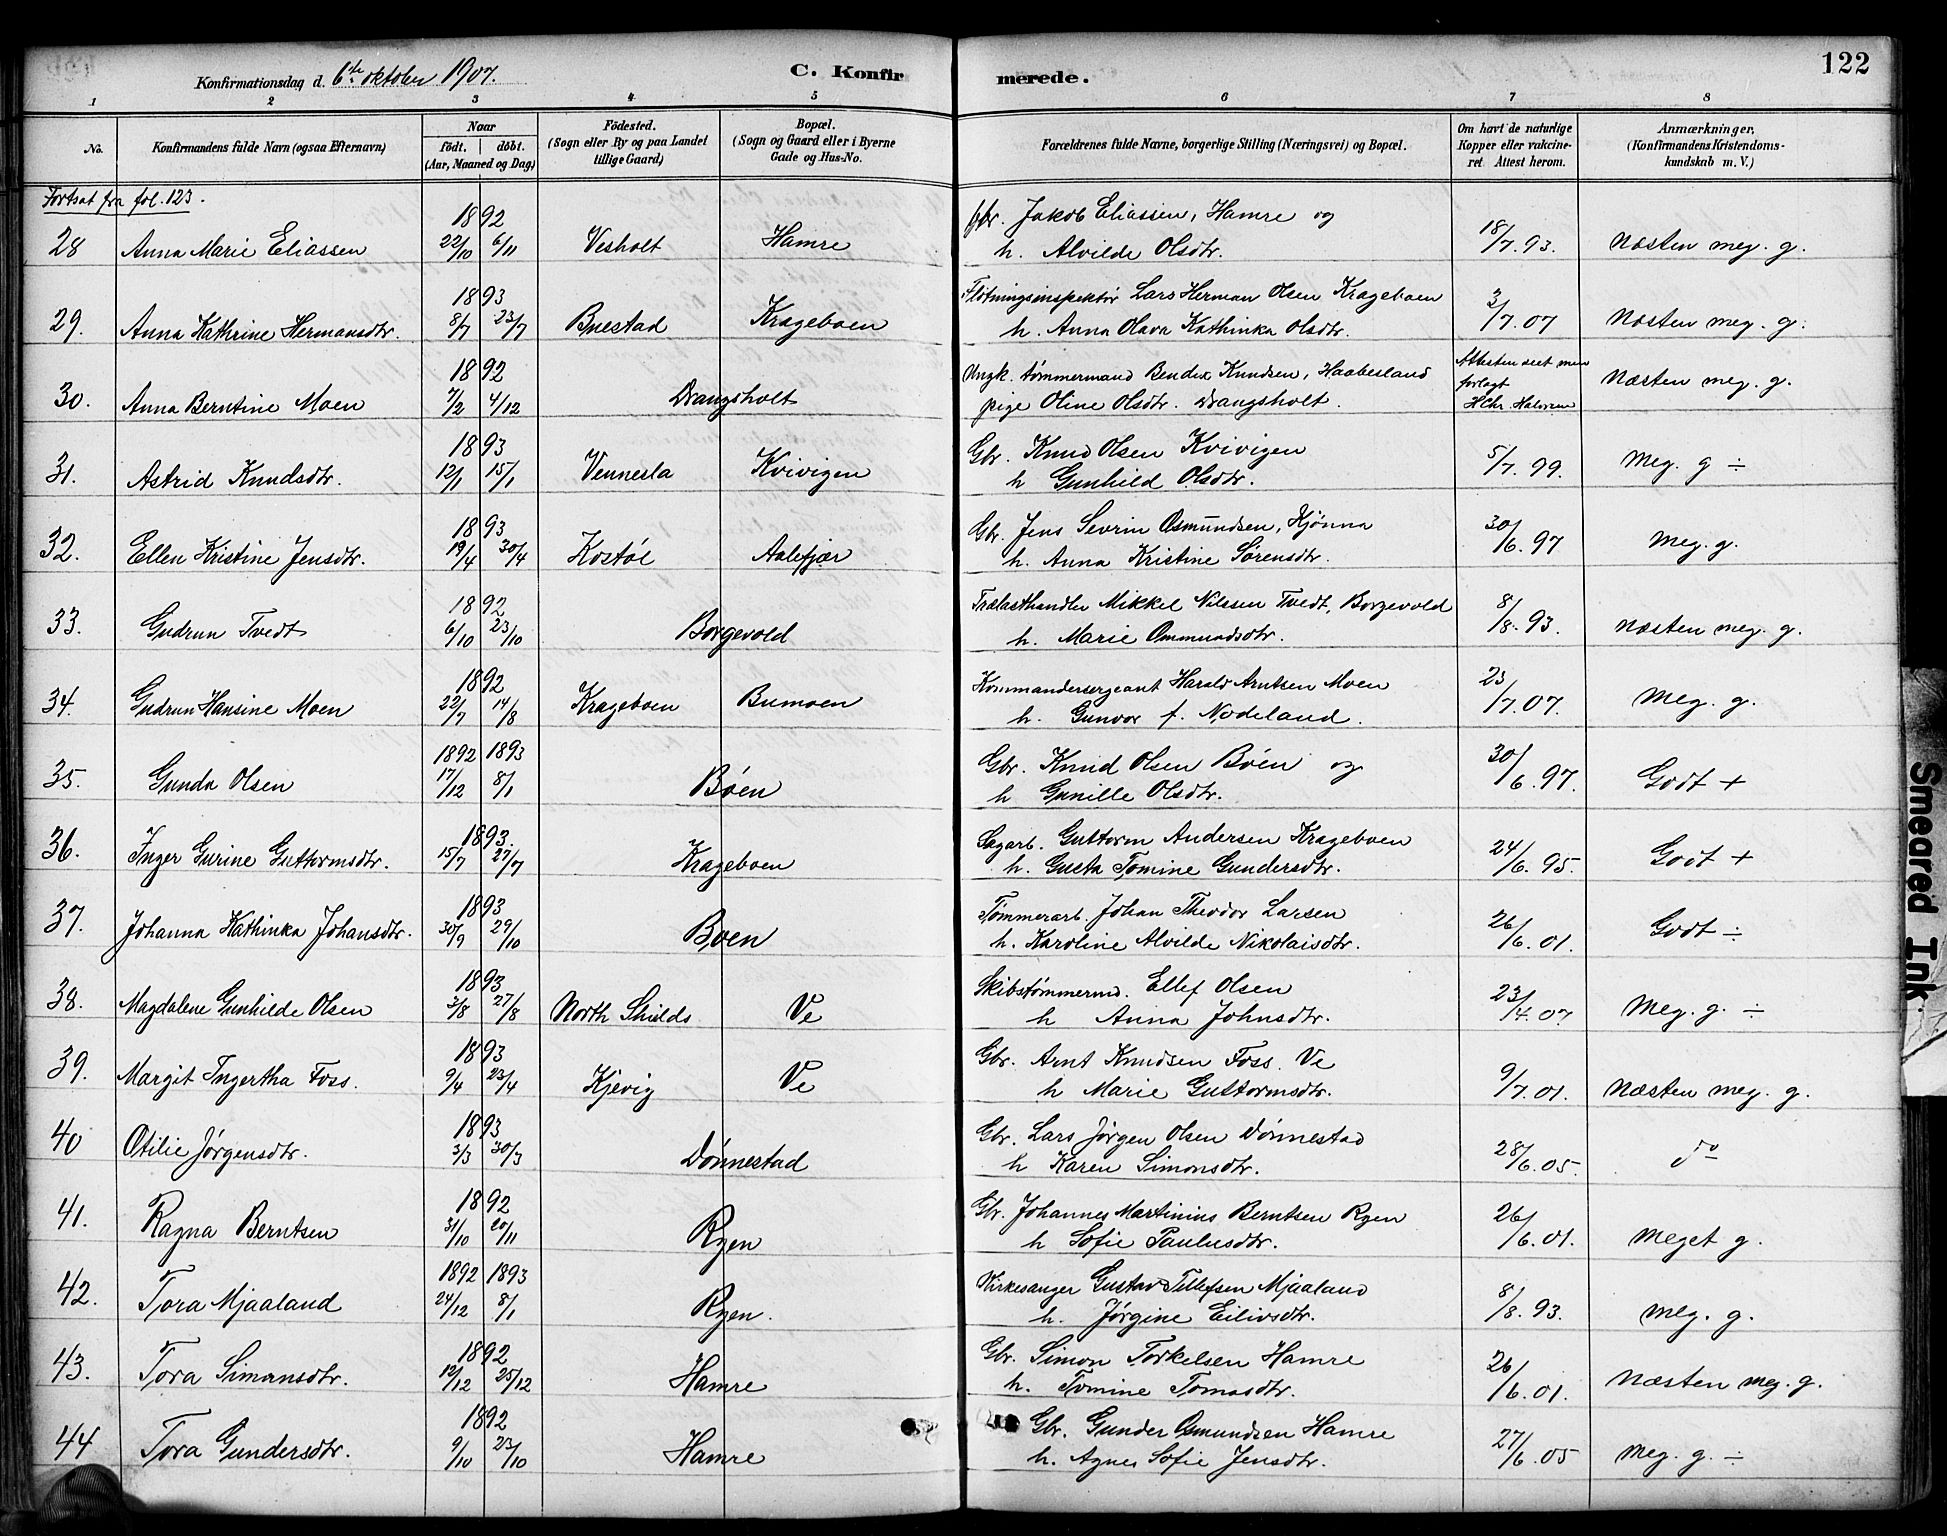 122
Konfirmationsdag d. 6te oktober 1907. C. Konfirmerede.
1 2 3 4 5 6 7 8
No. Konfirmandens fulde Navn (ogsaa Efternavn) Naar födt. döbt. (Aar, Maaned og Dag) Födested. (Sogn eller By og paa Landet tillige Gaard) Bopæl. (Sogn og Gaard eller i Byerne Gade og Hus-No. Forældrenes fulde Navne, borgerlige Stilling (Næringsvei) og Bopæl. Om havt de naturlige Kopper eller vakcineret. Attest herom. Anmærkninger. (Konfirmandens Kristendomskundskab m. V.)
Fortsat fra fol. 123.
28 Anna Marie Eliassen 1892 22/10 6/11 Vesholt Hamre Jakob Eliassen, Hamre og h. Alvilde Olsdtr. 18/7.93. Næsten meg. g.
29. Anna Kathrine Hermansdtr. 1893 8/7 23/7 Buestad Krageboen Fløtningsinspektør Lars Herman Olsen Krageboen h. Anna Olava Kathinka Olsdtr. 3/7.07 Næsten meg. g.
30. Anna Berntine Moen 1892 7/2 4/12 Drangsholt Ungk. tømmermand Bendix Knudsen, Haabesland pige Oline Olsdtr. Drangsholt. Attesten seet men forlagt HChr. Halvorsen Næsten meg. g.
31. Astrid Knudsdtr. 1893 12/1 15/1 Vennesla Kvivigen Gbr. Knud Olsen Kvivigen h Gunhild Olsdtr. 5/7.99. Meg. g ÷
32. Ellen Kristine Jensdtr. 1893 19/4 30/4 Kostøl Aalefjær Gbr. Jens Sevrin Osmundsen, Kjønna h. Anna Kristine Sørensdtr. 30/6.97 Meg. g.
33. Gudrun Tvedt 1892 6/10 23/10 Borgevold Trælasthandler Mikkel Nilssen Tvedt, Borgevold h. Marie Ommundsdtr. 8/8.93. Næsten meg. g.
34. Gudrun Hansine Moen 1892 22/7 14/8 Krageboen Bumoen Kommandersergeant Harald Arntsen Moen h. Gunvor f. Nodeland. 23/7.07. Meg. g.
35. Gunda Olsen 1892 1893 17/12 8/1 Bøen Gbr. Knud Olsen Bøen og h Gunille Olsdtr. 30/6.97. Godt +
36. Inger Gurine Guttormsdtr. 1893. 15/7 27/7 Krageboen Sagarb. Guttorm Andersen Krageboen h. Gusta Tomine Gundersdtr. 24/6.95. Godt +
37. Johanna Kathinka Johansdtr. 1893 30/9 29/10 Boen Tømmerarb. Johan Theodor Larsen h. Karoline Alvilde Nikolaisdtr. 26/6.01. Godt ÷
38. Magdalene Gunhilde Olsen 1893 3/8 27/8 North Shields Ve Skibstømmermd. Ellef Olsen h Anna Johnsdtr. 23/4.07 Meg. g. ÷
39. Margit Ingertha Foss. 1893 9/4 23/4 Kjevig Ve Gbr. Arnt Knudsen Foss. Ve h Marie Guttormsdtr. 9/7.01. Næsten meg. g.
40 Otilie Jørgensdtr. 1893 3/3 30/3 Dønnestad Gbr. Lars Jørgen Olsen Dønnestad h Karen Simonsdtr. 28/6.05. do
41. Ragna Berntsen 1892 31/10 20/11 Ryen Gbr. Johannes Martinius Berntsen Ryen h Sofie Paulusdtr. 26/6.01. Meget g.
42. Tora Mjaaland 1892 1893 24/12 8/1 Ryen. Kirkesanger Gustav Tellefsen Mjaaland h. Jørgine Eilivsdtr. 8/8.93. Meg. g.
43. Tora Simonsdtr. 1892 12/12 25/12 Hamre Gbr. Simon Torkelsen Hamre h. Tomine Tomasdtr. 26/6.01. Næsten meg. g.
44 Tora Gundersdtr. 1892 9/10 23/10 Hamre Gbr. Gunder Osmundsen Hamre h. Agnes Sofie Jensdtr. 27/6.05 Meg. g. ÷
Smeared Ink.